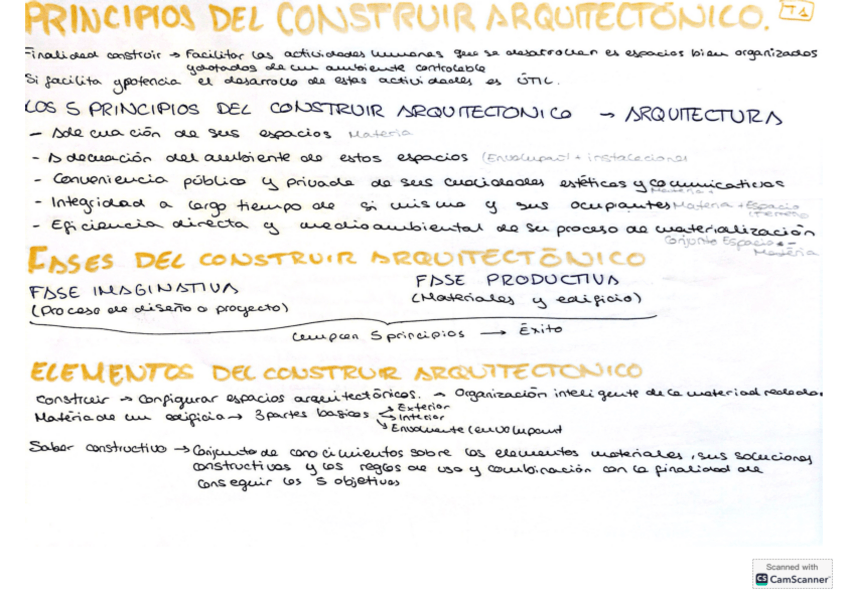 PRINCIPIOS DEL CONSTRUIR ARQUITECTÓNICO. T1
Finalidad construir → Facilitar las actividades humanas que se desarrollan es espacios bien organizados
y dotados de un ambiente controlable
Si facilita y potencia el desarrollo de estas actividades es ÚTIL.
LOS 5 PRINCIPIOS DEL CONSTRUIR ARQUITECTONICO → ARQUITECTURA
- Adecuación de sus espacios Materia
- Adecuación del ambiente de estos espacios (Envolupant + instalaciones
- Conveniencia público y privada de sus cualidades estéticas y comunicativas
Materia +
- Integridad a largo tiempo de si misma y sus ocupantes Materia + Espacio
- Eficiencia directa y medioambiental de su proceso de materialización
Conjunto Espacio + -
Materia
FASES DEL CONSTRUIR ARQUITECTÓNICO
FASE IMAGINATIVA
(Proceso de diseño o proyecto)
FASE PRODUCTIVA
(Materiales y edificio)
Cumplen 5 principios → Éxito
ELEMENTOS DEL CONSTRUIR ARQUITECTONICO
Construir → Configurar espacios arquitectónicos. → Organización inteligente de la materia
Matéria de un edificio → 3 partes basicas → Exterior
→ Interior
→ Envolvente (envolupant
Saber constructivo → Conjunto de conocimientos sobre los elementos materiales, sus soluciones
constructivas y las reglas de uso y combinación con la finalidad de
conseguir los 5 objetivos
Scanned with
CS CamScanner